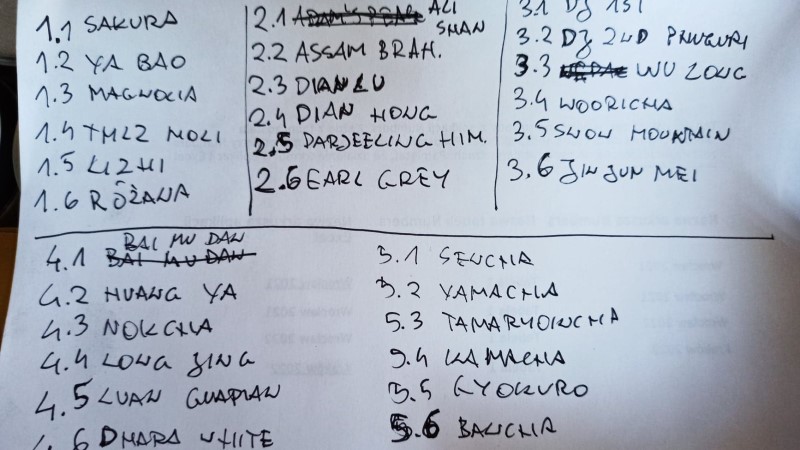 1.1 SAKURA
1.2 YA BAO
1.3 MAGNOLIA
1.4 TMLZ MOLI
1.5 LIZHI
1.6 RÓŻANA
2.1 ALI SHAN
2.2 ASSAM BRAH.
2.3 DIAN LU
2.4 DIAN HONG
2.5 DARJEELING HIM.
2.6 EARL GREY
3.1 DJ 1ST
3.2 DJ 2ND PHUGURI
3.3 WU LONG
3.4 WOORICHA
3.5 SNOW MOUNTAIN
3.6 JIN JUN MEI
4.1 BAI MU DAN
BAI MU DAN
4.2 HUANG YA
4.3 NOKCHA
4.4 LONG JING
4.5 LUAN GUAPIAN
4.6 DHARA WHITE
5.1 SENCHA
5.2 YAMACHA
5.3 TAMARYOKUCHA
5.4 KAMACHA
5.5 GYOKURO
5.6 BANCHA